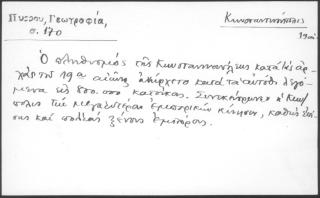 Πύρρου, Γεωγραφία,
σ. 170
Κωνσταντινούπολις
19 αι
Ὁ πληθυσμὸς τῆς Κωνσταντινουπόλεως κατὰ τὰς ἀρ-
χὰς τοῦ 19 αἰῶνος ἀνήρχετο κατὰ τὰ αὐτόθι λεγό-
μενα εἰς 800.000 κατοίκους. Συνεκέντρωνε ἡ Κων/
πολις τὴν μεγαλυτέραν ἐμπορικὴν κίνησιν, καθὼς ἐπί-
σης καὶ πολλοὺς ξένους ἐμπόρους.